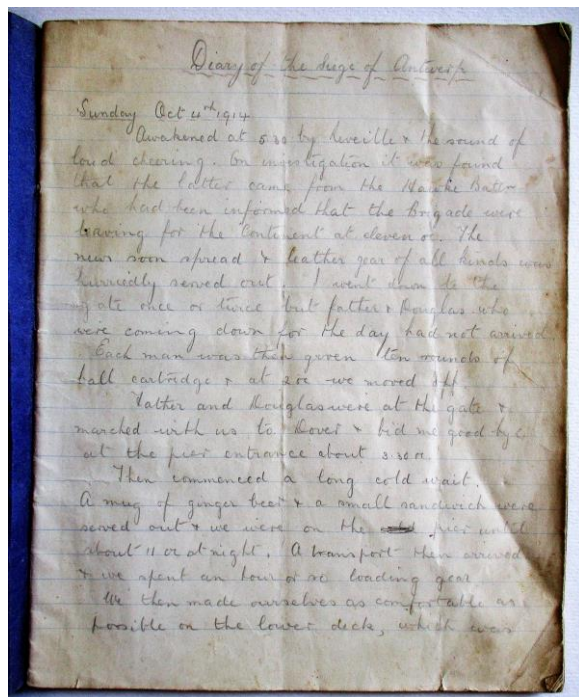 Diary of the Siege of Antwerp
Sunday Oct 4th 1914
Awakened at 5.30 by Reveille & the sound of
loud cheering. On investigation it was found
that the latter came from the Hawke Battn
who had been informed that the Brigade were
leaving for the Continent at eleven oc. The
news soon spread & leather gear of all kinds was
hurriedly served out. I went down to the
gate once or twice but father & Douglas who
were coming down for the day had not arrived
Each man was then given ten rounds of
ball cartridge & at 2 oc we moved off.
Father and Douglas were at the gate &
marched with us to Dover & bid me good bye
at the pier entrance about 3.30
Then commenced a long cold wait.
A mug of ginger beer & a small sandwich were
served out & we were on the pier until
about 11 oc at night. A transport then arrived
& we spent an hour or so loading gear
We then made ourselves as comfortable as
possible on the lower deck, which was